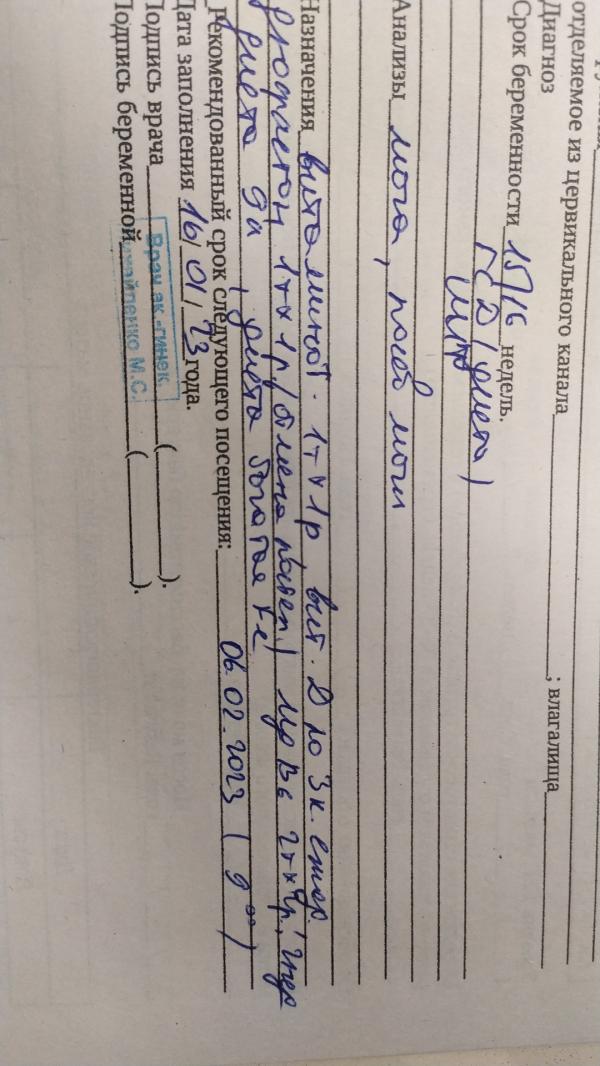 отделяемое из цервикального канала ; влагалища
Диагноз
Срок беременности 15/16 недель.
ГСД (диета)
Анализы моча, посев мочи
Назначения витаминот. 1т х 1р, вит. D по 3 к. ежед.
1т х 1р (отмена постеп.) Мg B6 2т х
диета 9а, диета богатая Fe
Рекомендованный срок следующего посещения: 06.02.2023 ( 9⁰⁰ )
Дата заполнения 16/01/23 года.
Подпись врача ( ).
Врач ак.-гинек.
Подпись беременной ( ).
М.С.